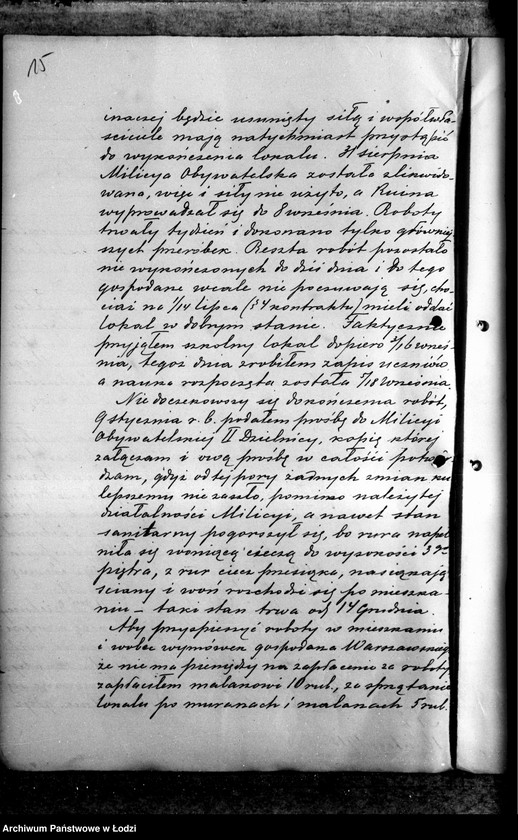 15
inaczej będzie usunięty siłą i współwła-
ściciele mają natychmiast przystąpić
do wykończenia lokalu. 31 sierpnia
Milicya Obywatelska została zlikwido-
wana, więc i siły nie użyto, a Ruina
wyprowadzał się do 8 września. Roboty
trwały tydzień i dokonano tylko główniej-
szych przeróbek. Reszta robót pozostało
nie wykończonych do dziś dnia i do tego
gospodarze wcale nie poczuwają się, cho-
ciaż na 1/14 lipca (§ 4 kontraktu) mieli oddać
lokal w dobrym stanie. Faktycznie
przyjąłem szkolny lokal dopiero 3/16 wrześ-
nia, tegoż dnia zrobiłem zapis uczniów
a nauka rozpoczęta została 5/18 Września.
Nie doczekawszy się dokończenia robót,
9 stycznia r. b. podałem prośbę do Milicyi
Obywatelskiej II Dzielnicy, kopię której
załączam i ową prośbę w całości potwier-
dzam, gdyż od tej pory żadnych zmian ku
lepszemu nie zaszło, pomimo należytej
działalności Milicyi, a nawet stan
sanitarny pogorszył się, bo rura napeł-
niła się wonniącą cieczą do wysokości 3go
piętra, z rur ciecz przesiąka, nasiąkają
ściany i woń rozchodzi się po mieszka-
niu – taki stan trwa od 14 Grudnia.
Aby przyspieszyć roboty w mieszkaniu
i wobec wymówek gospodarza Warszawskiego
że nie ma pieniędzy na zapłacenie za roboty
zapłaciłem malarzowi 10 rub., za sprzątanie
lokalu po murarzach i malarzach 5 rub.
Archiwum Państwowe w Łodzi